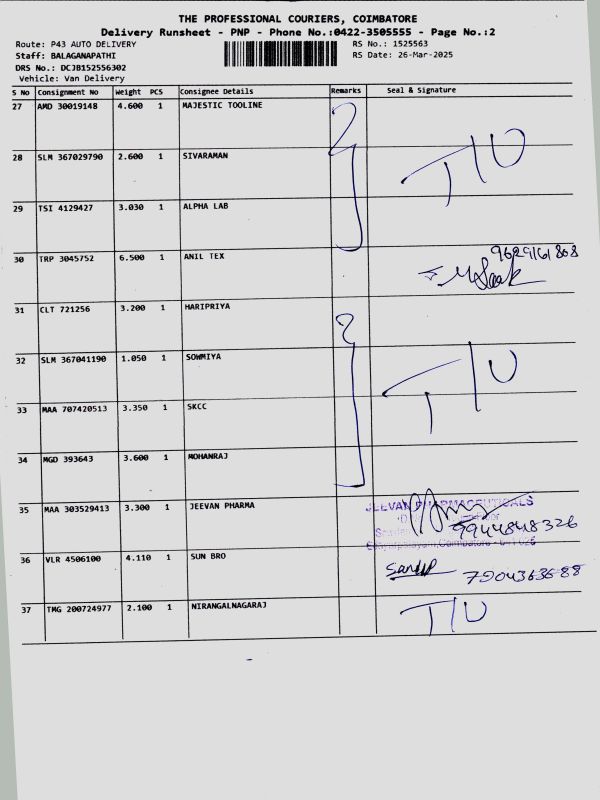 THE PROFESSIONAL COURIERS, COIMBATORE
Delivery Runsheet - PNP - Phone No.:0422-3505555 - Page No.:2
Route: P43 AUTO DELIVERY RS No.: 1525563
Staff: BALAGANAPATHI RS Date: 26-Mar-2025
DRS No.: DCJB152556302
Vehicle: Van Delivery
S No Consignment No Weight PCS Consignee Details Remarks Seal & Signature
27 AMD 30019148 4.600 1 MAJESTIC TOOLINE
28 SLM 367029790 2.600 1 SIVARAMAN T/U
29 TSI 4129427 3.030 1 ALPHA LAB
30 TRP 3045752 6.500 1 ANIL TEX 9629161808
31 CLT 721256 3.200 1 HARIPRIYA
32 SLM 367041190 1.050 1 SOWMIYA T/U
33 MAA 707420513 3.350 1 SKCC
34 MGD 393643 3.600 1 MOHANRAJ
35 MAA 303529413 3.300 1 JEEVAN PHARMA JEEVAN PHARMACEUTICALS
9944848326
36 VLR 4506100 4.110 1 SUN BRO
37 TMG 200724977 2.100 1 NIRANGALNAGARAJ T/U